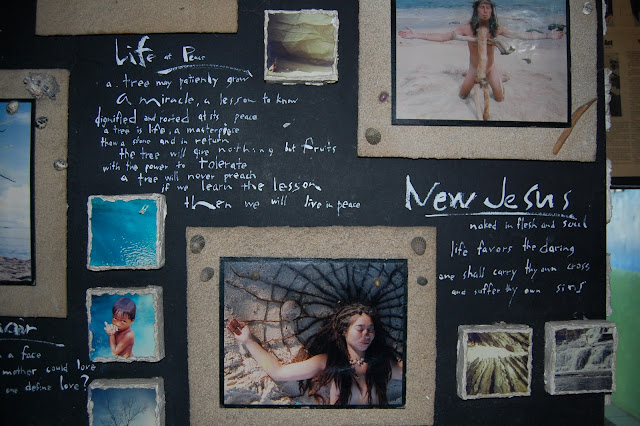 Life at Peace
a tree may patiently grow
a miracle, a lesson to know
dignified and rooted at its peace
a tree is life, a masterpeace
than a stone and in return
the tree will give nothing but fruits
with the power to tolerate
a tree will never preach
if we learn the lesson
then we will live in peace
New Jesus
naked in flesh and soul
life favors the daring
one shall carry thy own cross
and suffer thy own sins
a face
mother could love
one define love?